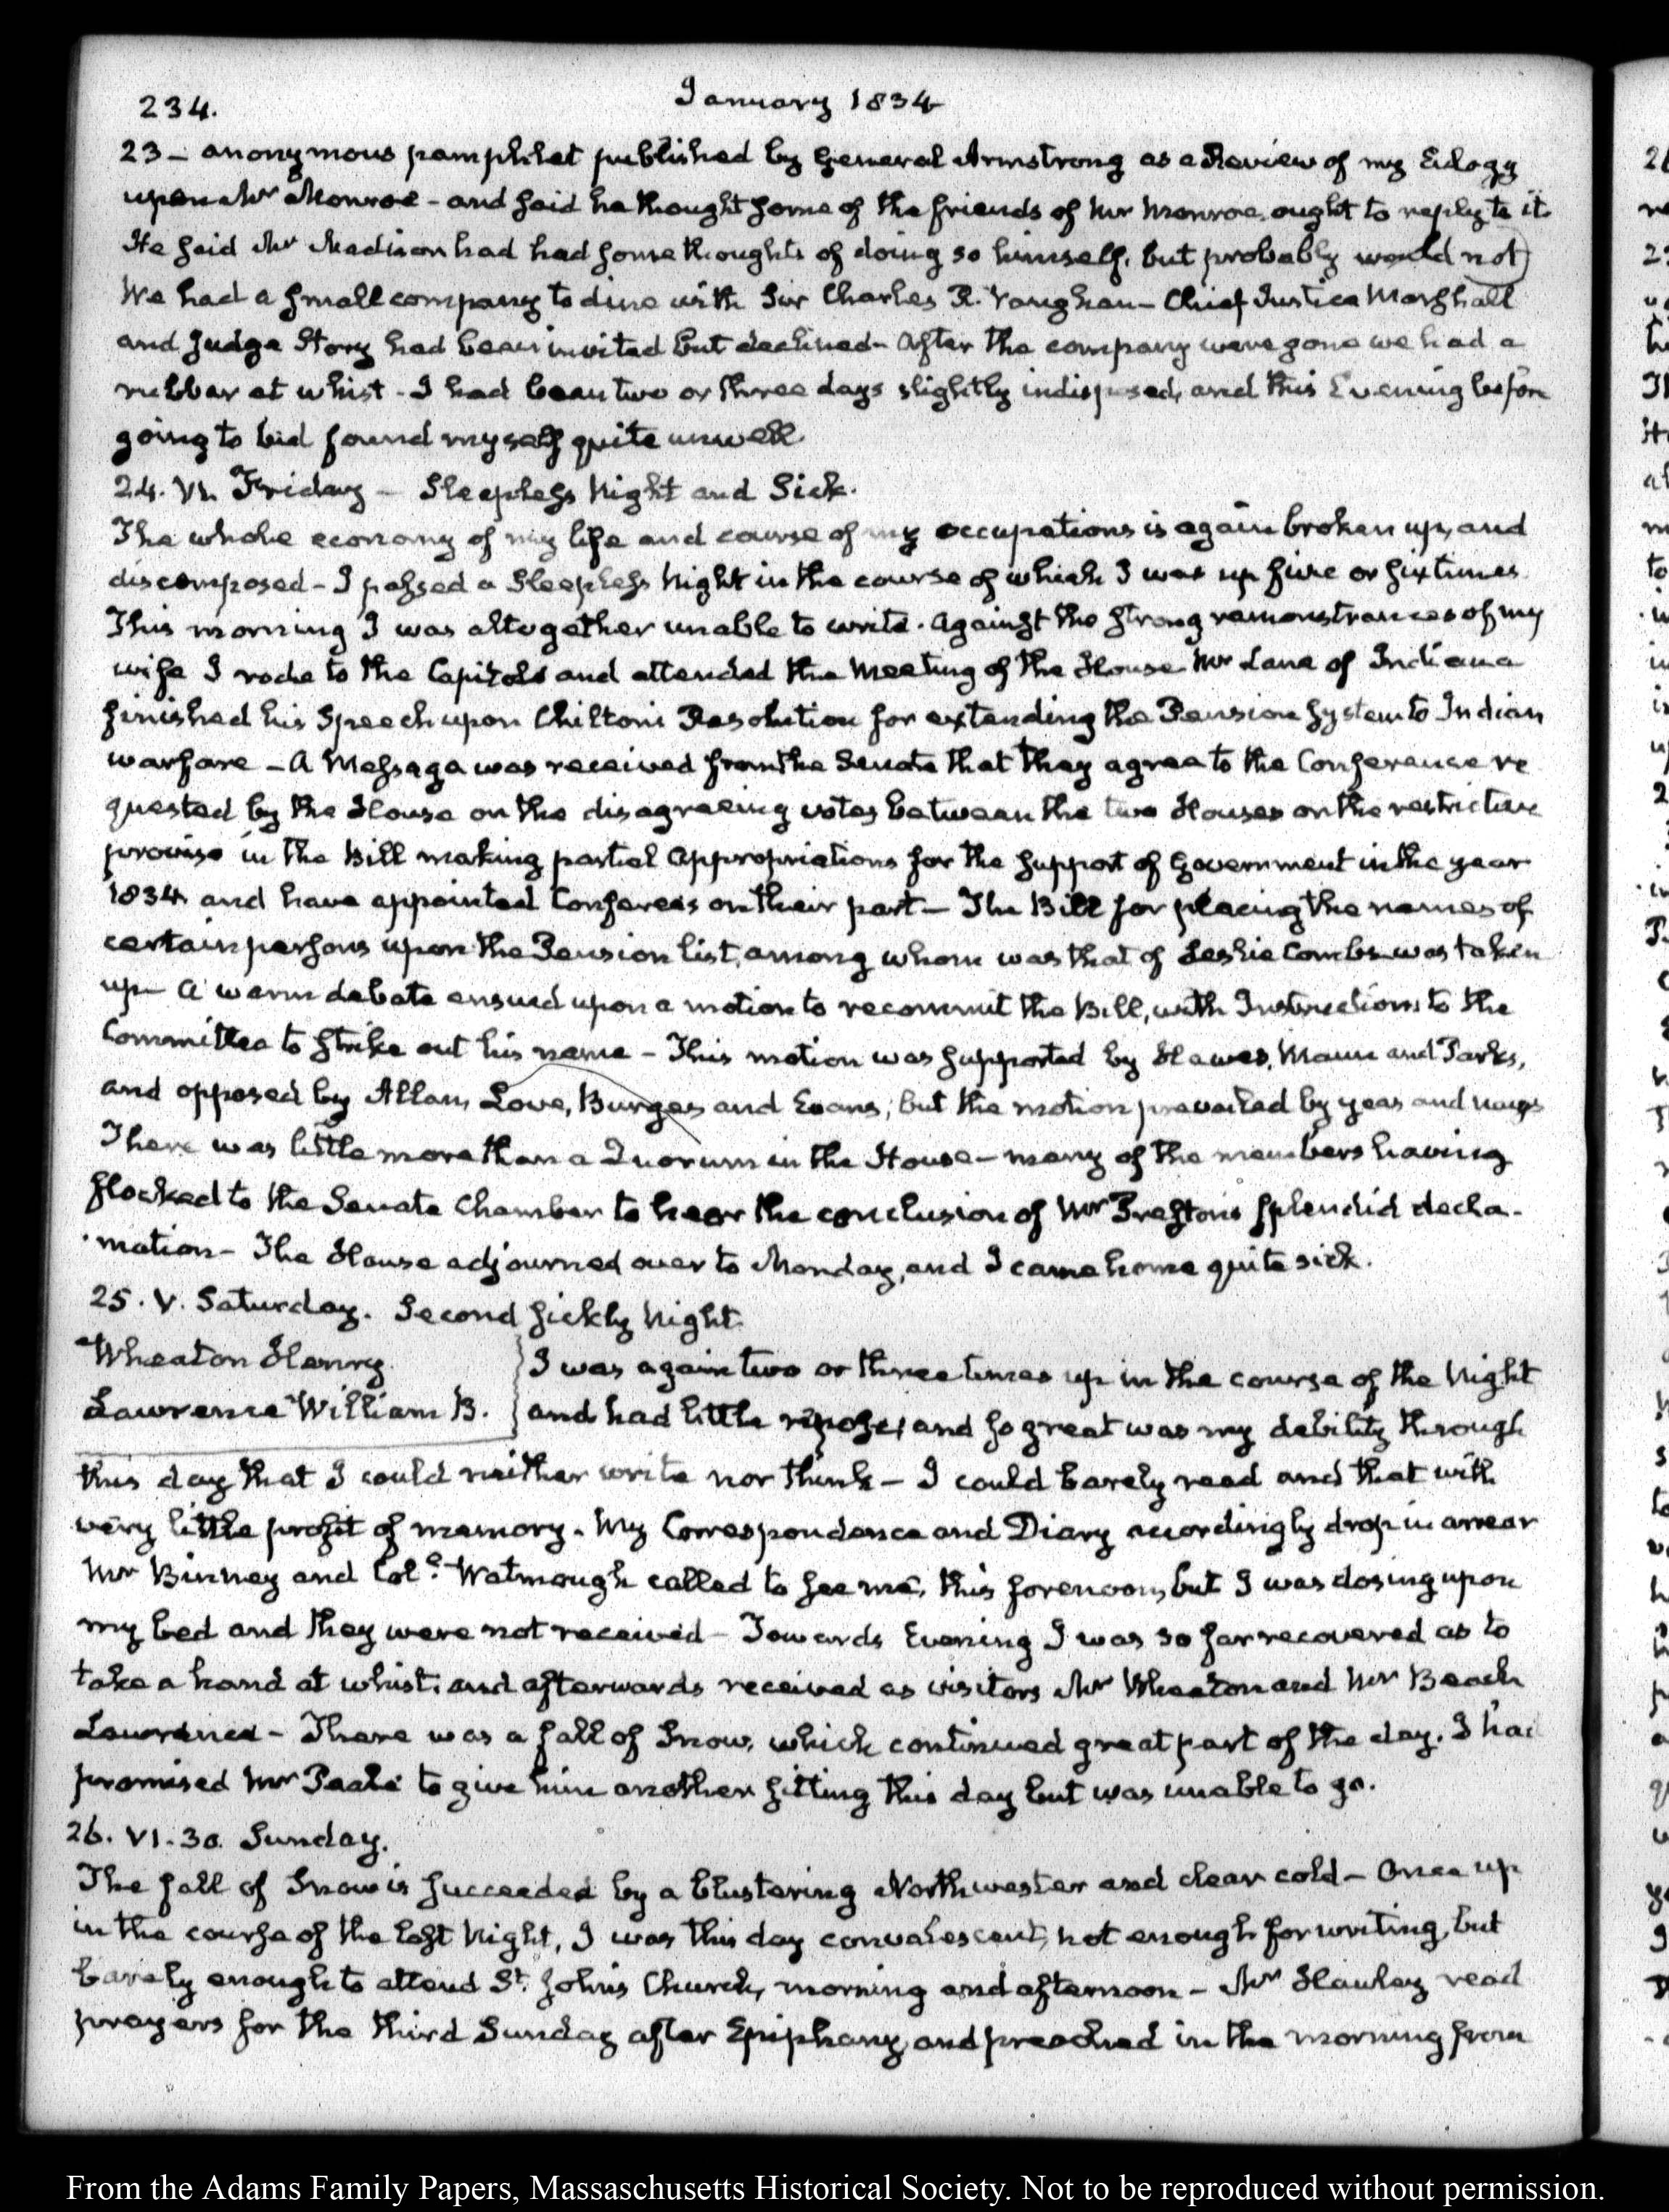 234.
January 1834
23 – anonymous pamphlet published by General Armstrong as a Review of my Eulogy
upon Mr Monroe – and said he thought some of the friends of Mr Monroe, ought to reply to it
He said Mr Madison had had some thoughts of doing so himself, but probably would not)
We had a small company to dine with Sir Charles R. Vaughan – Chief Justice Marshall
and Judge Story had been invited but declined – After the company were gone we had a
rubber at whist – I had been two or three days slightly indisposed, and this Evening before
going to bed found myself quite unwell.
24. VI. Friday – Sleepless Night and Sick.
The whole economy of my life and course of my occupations is again broken up, and
discomposed – I passed a Sleepless Night in the course of which I was up five or six times.
This morning I was altogether unable to write. Against the strong remonstrances of my
wife I rode to the Capitol and attended the Meeting of the House Mr Lane of Indiana
finished his Speech upon Chilton's Resolution for extending the Pension System to Indian
warfare – A Message was received from the Senate that they agree to the Conference re
quested by the House on the disagreeing votes between the two Houses on the restrictive
proviso in the Bill making partial Appropriations for the support of Government in the year
1834 and have appointed Conferees on their part – The Bill for placing the names of
certain persons upon the Pension list, among whom was that of Leslie Combs was taken
up – A warm debate ensued upon a motion to recommit the Bill, with Instructions to the
Committee to strike out his name – This motion was supported by Hawes, Mann and Parks,
and opposed by Allan, Love, Burges and Evans; but the motion prevailed by yeas and nays
There was little more than a Quorum in the House – many of the members having
flocked to the Senate Chamber to hear the conclusion of Mr Preston's splendid decla-
mation – The House adjourned over to Monday, and I came home quite sick.
25. V. Saturday. Second sickly Night.
Wheaton Henry
Lawrence William B.
I was again two or three times up in the course of the Night
and had little repose, and so great was my debility through
this day that I could neither write nor think – I could barely read and that with
very little profit of memory. My Correspondence and Diary accordingly drop in arrear
Mr Binney and Col.o Watmough called to see me, this forenoon, but I was dosing upon
my bed and they were not received – Towards Evening I was so far recovered as to
take a hand at whist, and afterwards received as visitors Mr Wheaton and Mr Beach
Lawrence – There was a fall of Snow, which continued great part of the day. I had
promised Mr Peale to give him another sitting this day but was unable to go.
26. VI.30. Sunday.
The fall of Snow is succeeded by a blustering Northwester and clear cold – Once up
in the course of the last Night, I was this day convalescent, not enough for writing, but
barely enough to attend St. John's Church, morning and afternoon – Mr Hawley read
prayers for the third Sunday after Epiphany, and preached in the morning from
From the Adams Family Papers, Massachusetts Historical Society. Not to be reproduced without permission.